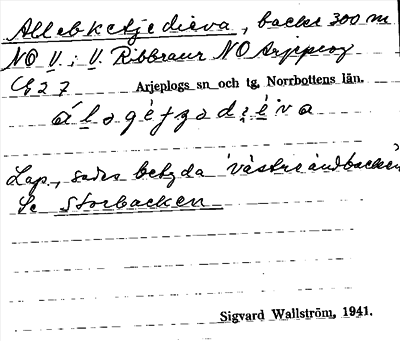 Allebketjedieva, backe 300 m
NO V. i V. Ribbraur NO Arjeplog
C 27 Arjeplogs sn och tg, Norrbottens län.
Lap., sades betyda 'västerändbacken'
Se Storbacken
Sigvard Wallström, 1941.